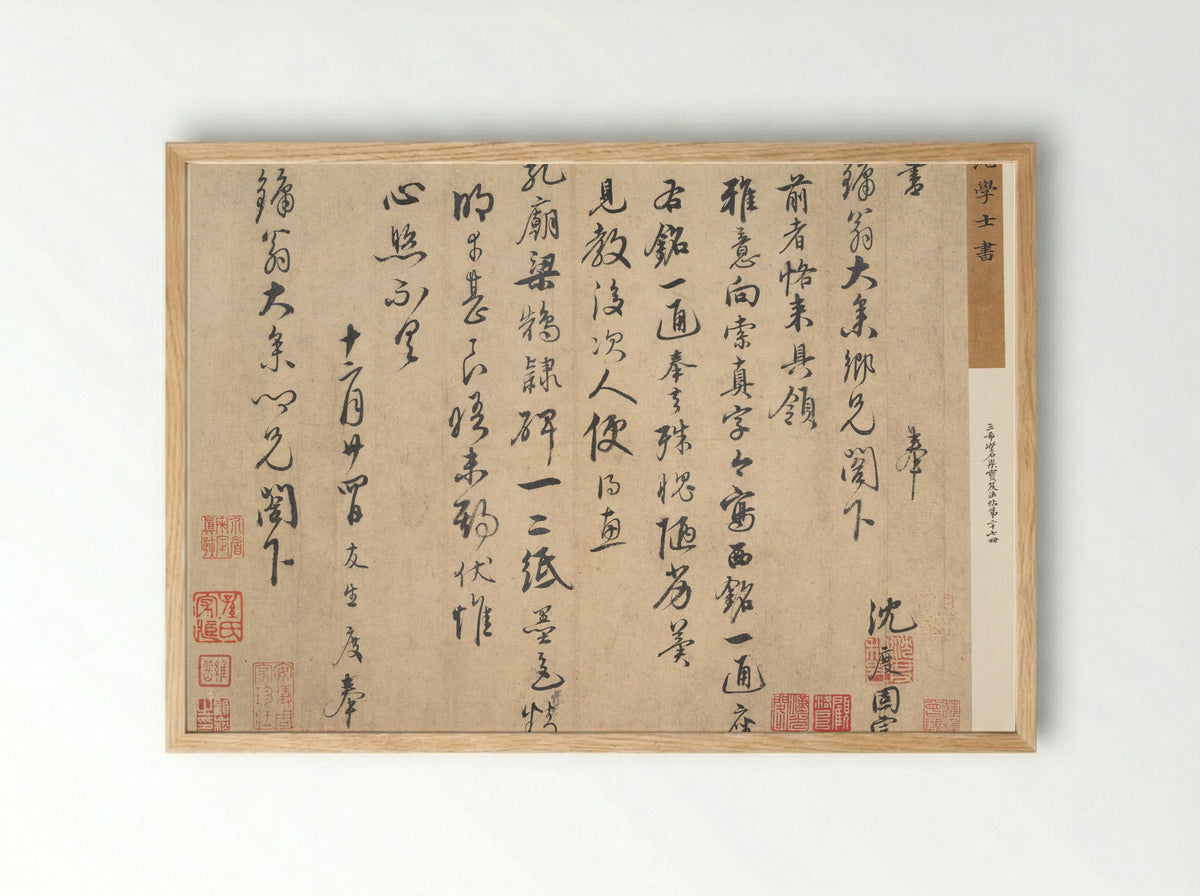 學士書
三希堂石渠寶笈法帖第二十七冊
書 奉
沈度固
鏞翁大參鄉兄閣下
前者恪来具領
雅意向索真字今寫西銘一通座
右銘一通奉去殊愧陋劣冀
見教後次人便得惠
孔廟梁鵠隸碑一二紙墨色
明甚良晤未期伏惟
心照不具
十二月廿四日友生度奉
鏞翁大參鄉兄閣下